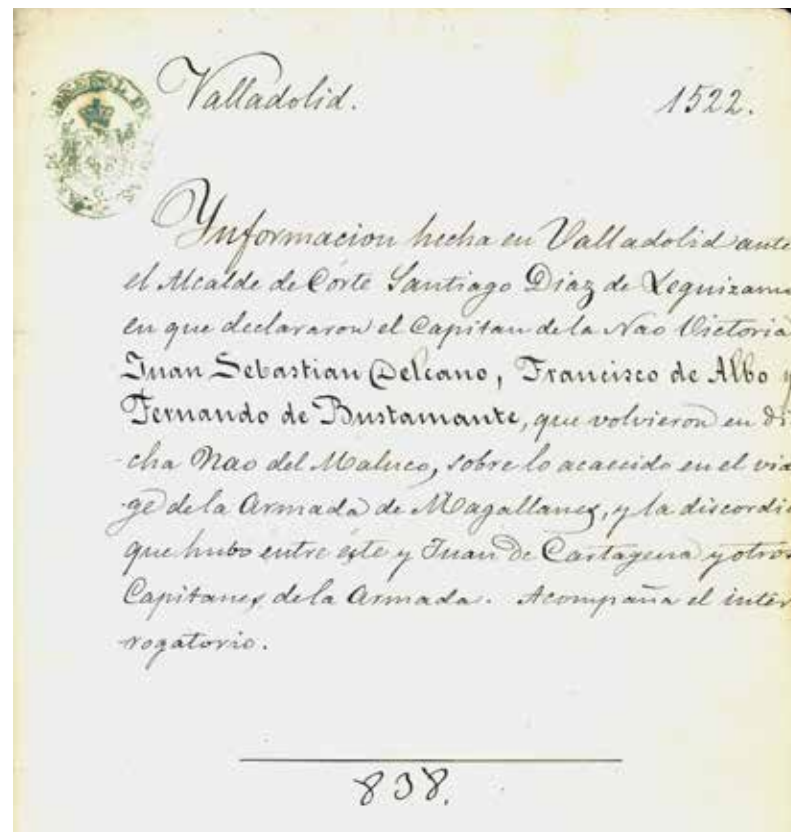 Valladolid. 1522.
Ynformacion hecha en Valladolid ante
el Alcalde de Córte Santiago Diaz de Leguizamo
en que declararon el Capitan de la Nao Victoria
Juan Sebastian Delcano, Francisco de Albo y
Fernando de Bustamante, que volvieron en di
-cha Nao del Maluco, sobre lo acaecido en el via
-ge de la Armada de Magallanes, y la discordia
que hubo entre éste y Juan de Cartagena y otros
Capitanes de la Armada. Acompaña el inter
rogatorio.
838.